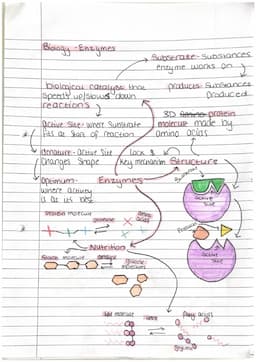 Biology - Enzymes
Substrate - Substances
enzyme works on
biological catalyst that
speeds up/slows down
reactions
products - Substances
produced
3D Amino protein
molecule made by
amino acids
Active Site - where Substrate
fits at start of reaction
denature - Active Site
Changes Shape
Lock &
Key mechanism
Structure
Optimum -
where activity
is at its best
Enzymes
Substrate
Active
Site
protein molecule
protease
amino
acids
Products
Nutrition
Starch molecule
amylase
glucose
molecules
Active
Site
molecule
fatty acids
glycerol